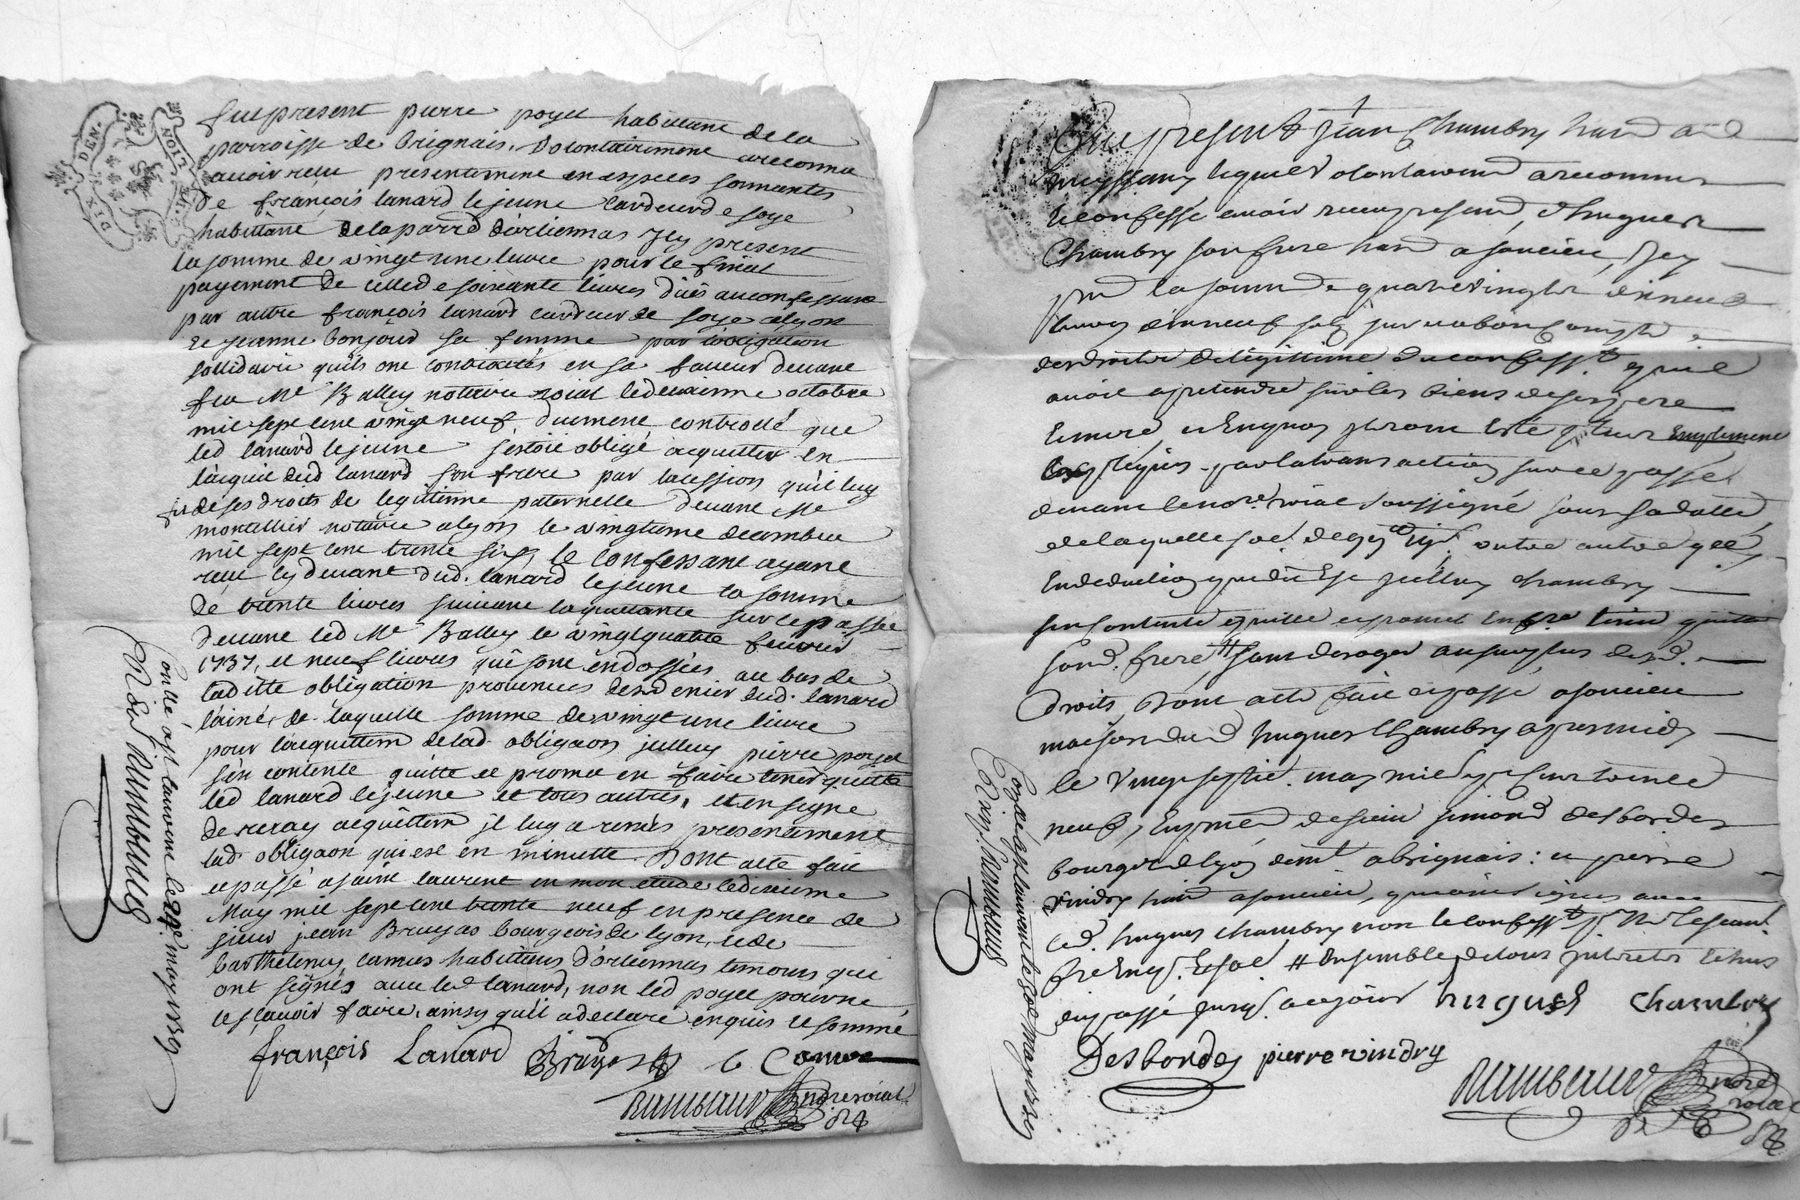 DIX DEN. LION
fut present pierre poyet habittant de la
parroisse de brignais, volontairement a reconnu
avoir reçu presentement en especes sonnantes
de françois lanard le jeune cardeur de soye
habittant de la parr d'orliennas icy present
la somme de vingt une livre pour le final
payement de celle de soixante livres dües au confessant
par autre françois lanard cardeur de soye a lyon
et jeanne bonjour sa femme par l'obligation
sollidaire qu'ils ont contractés en sa faveur devant
feu Me Balley notaire roial le deuxième octobre
mil sept cent vingt neuf, duement controllé que
led lanard le jeune s'estoit obligé acquitter en
l'acquit dud lanard son frere par la cession qu'il luy
fit de ses droits de legitime paternelle devant Me
montellier notaire a lyon le vingtieme decembre
mil sept cent trente six, le confessant ayant
reçu cy devant dud. lanard le jeune la somme
de trente livres suivant la quittance sur ce passée
devant led Me Balley le vingt quatre fevrier
1737, et neuf livres qui sont endossées au bas de
laditte obligation provenües des deniers dud. lanard
l'ainé, de laquelle somme de vingt une livre
pour l'acquittem de lad. obligaon jcelluy pierre poyet
s'en contente quitte et promet en faire tenir quitte
led lanard le jeune et tous autres, et en signe
de vray acquittem il luy a remis presentement
lad obligaon qui est en minutte. Dont acte fait
et passé a saint laurent en mon etude le deuxieme
May mil sept cent trente neuf en presence de
sieur jean Bruyas bourgeois de lyon, et de
barthelemy camus habittans d'orliennas temoins qui
ont signés avec led lanard, non led poyet pour ne
le sçavoir faire, ainsy qu'il a declaré enquis et sommé
françois Lanard Bruyas b Camus
Rambaud nore roial
Conllé a st laurent le 22e may 1739
Rambaud
Fut present Jean Chambry hand a
lequel volontairement a reconnu
et confessé avoir reçu present, d'hugues
Chambry son frere hand a soucieu, icy
pnt la somme de quatre vingts dix neuf
livres dix neuf sols sur et a bon compte
des droits de légitime du confesst qu'il
avoit a pretendre sur les biens de ses pere
et mere,
par la transaction sur ce passé
devant le nore roial soussigné sous sa datte
de laquelle
en deduction jcelluy chambry
s'en contente quitte et promet en fre tenir quitte
sond. frere # sans deroger au surplus desd.
droits, dont acte fait et passé a soucieu
maison dud hugues Chambry apres midy
le vingt septie. may mil sept cent trente
neuf, en pnce de sieur simond desbordes
bourgeois de lyon demt a brignais: et pierre
vindry hand a soucieu, qui ont signés avec
led. hugues chambry non le confesst p. ne le scavt.
fre enq. et som # ensemble de tous interets echus
hugues Chambry
Desbordes pierre vindry
Rambaud nore roial
Conllé a st laurent le may 1739
Rambaud